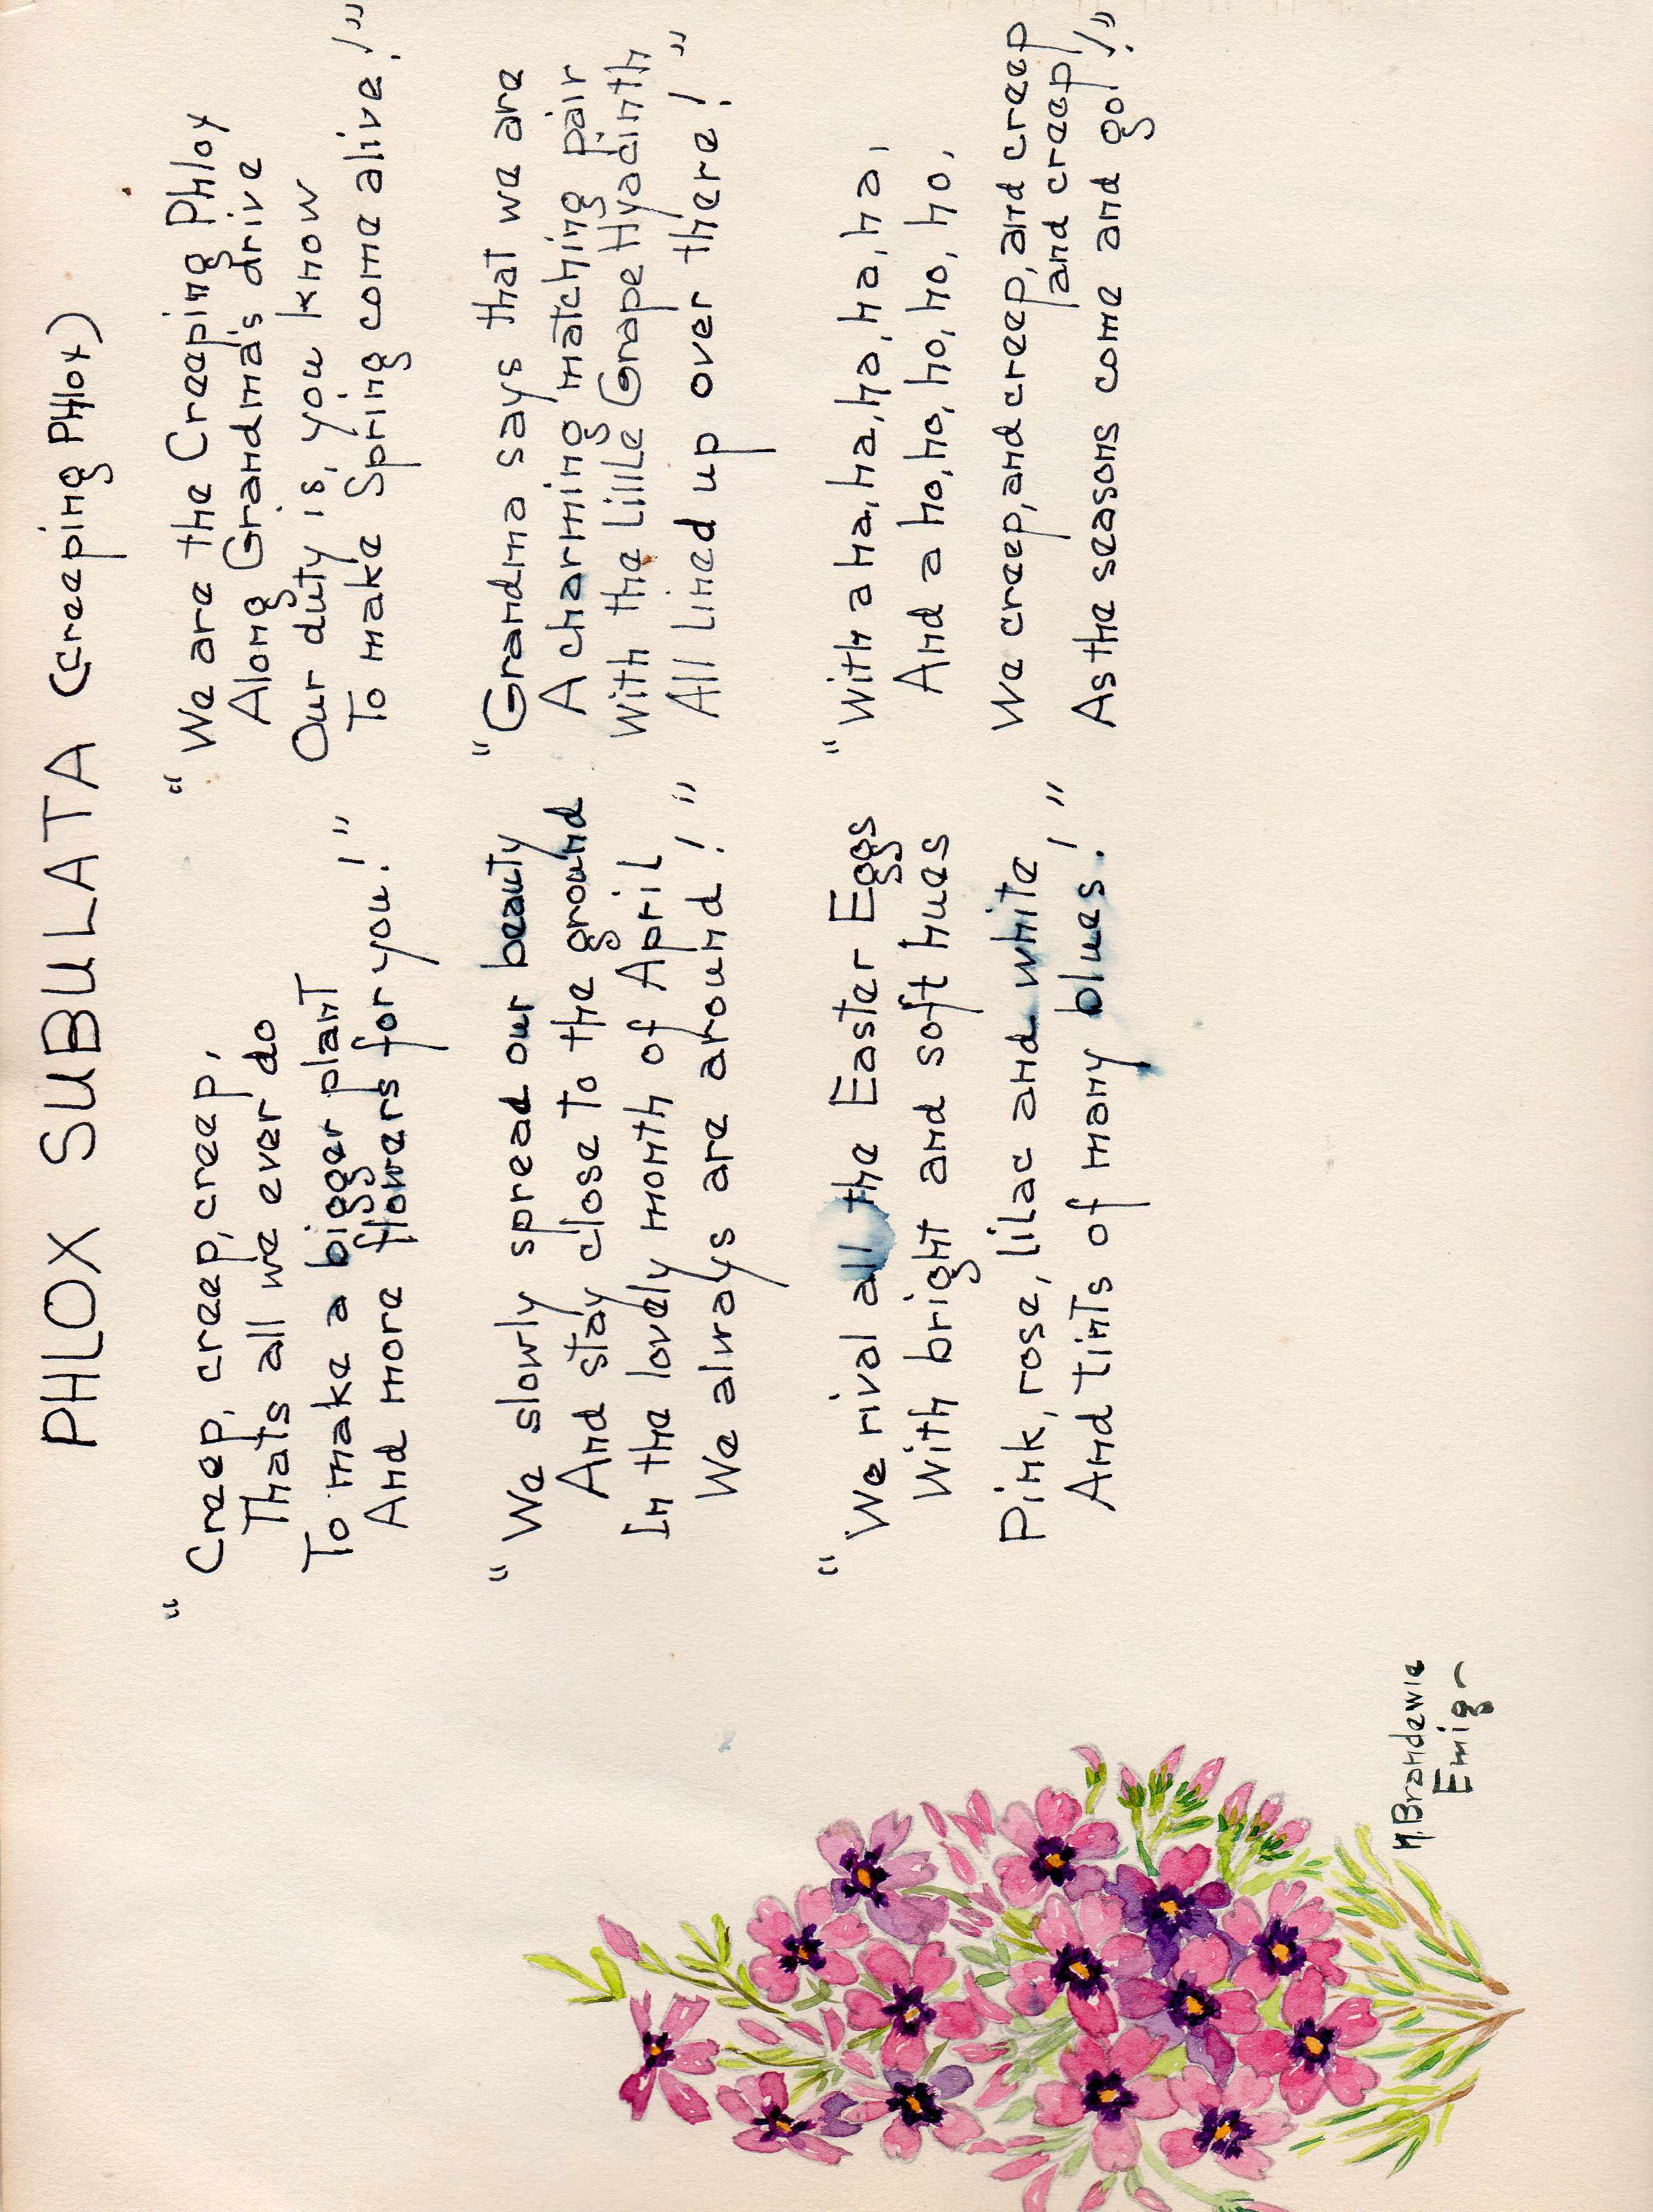 PHLOX SUBULATA (Creeping PHlox)
"Creep, creep, creep, creep,
Thats all we ever do
To make a bigger plant
And more flowers for you!"
"We slowly spread our beauty
And stay close to the ground
In the lovely month of April
We always are around!"
"We rival all the Easter Eggs
With bright and soft hues
Pink, rose, lilac and white
And tints of many blues!"
"We are the Creeping Phlox
Along Grandma's drive
Our duty is, you know
To make Spring come alive!"
"Grandma says that we are
A charming matching pair
With the Little Grape Hyacinth
All lined up over there!"
"With a ha, ha, ha, ha, ha,
And a ho, ho, ho, ho, ho,
We creep, and creep, and creep
and creep
As the seasons come and go!"
M. Brandewie
Emig